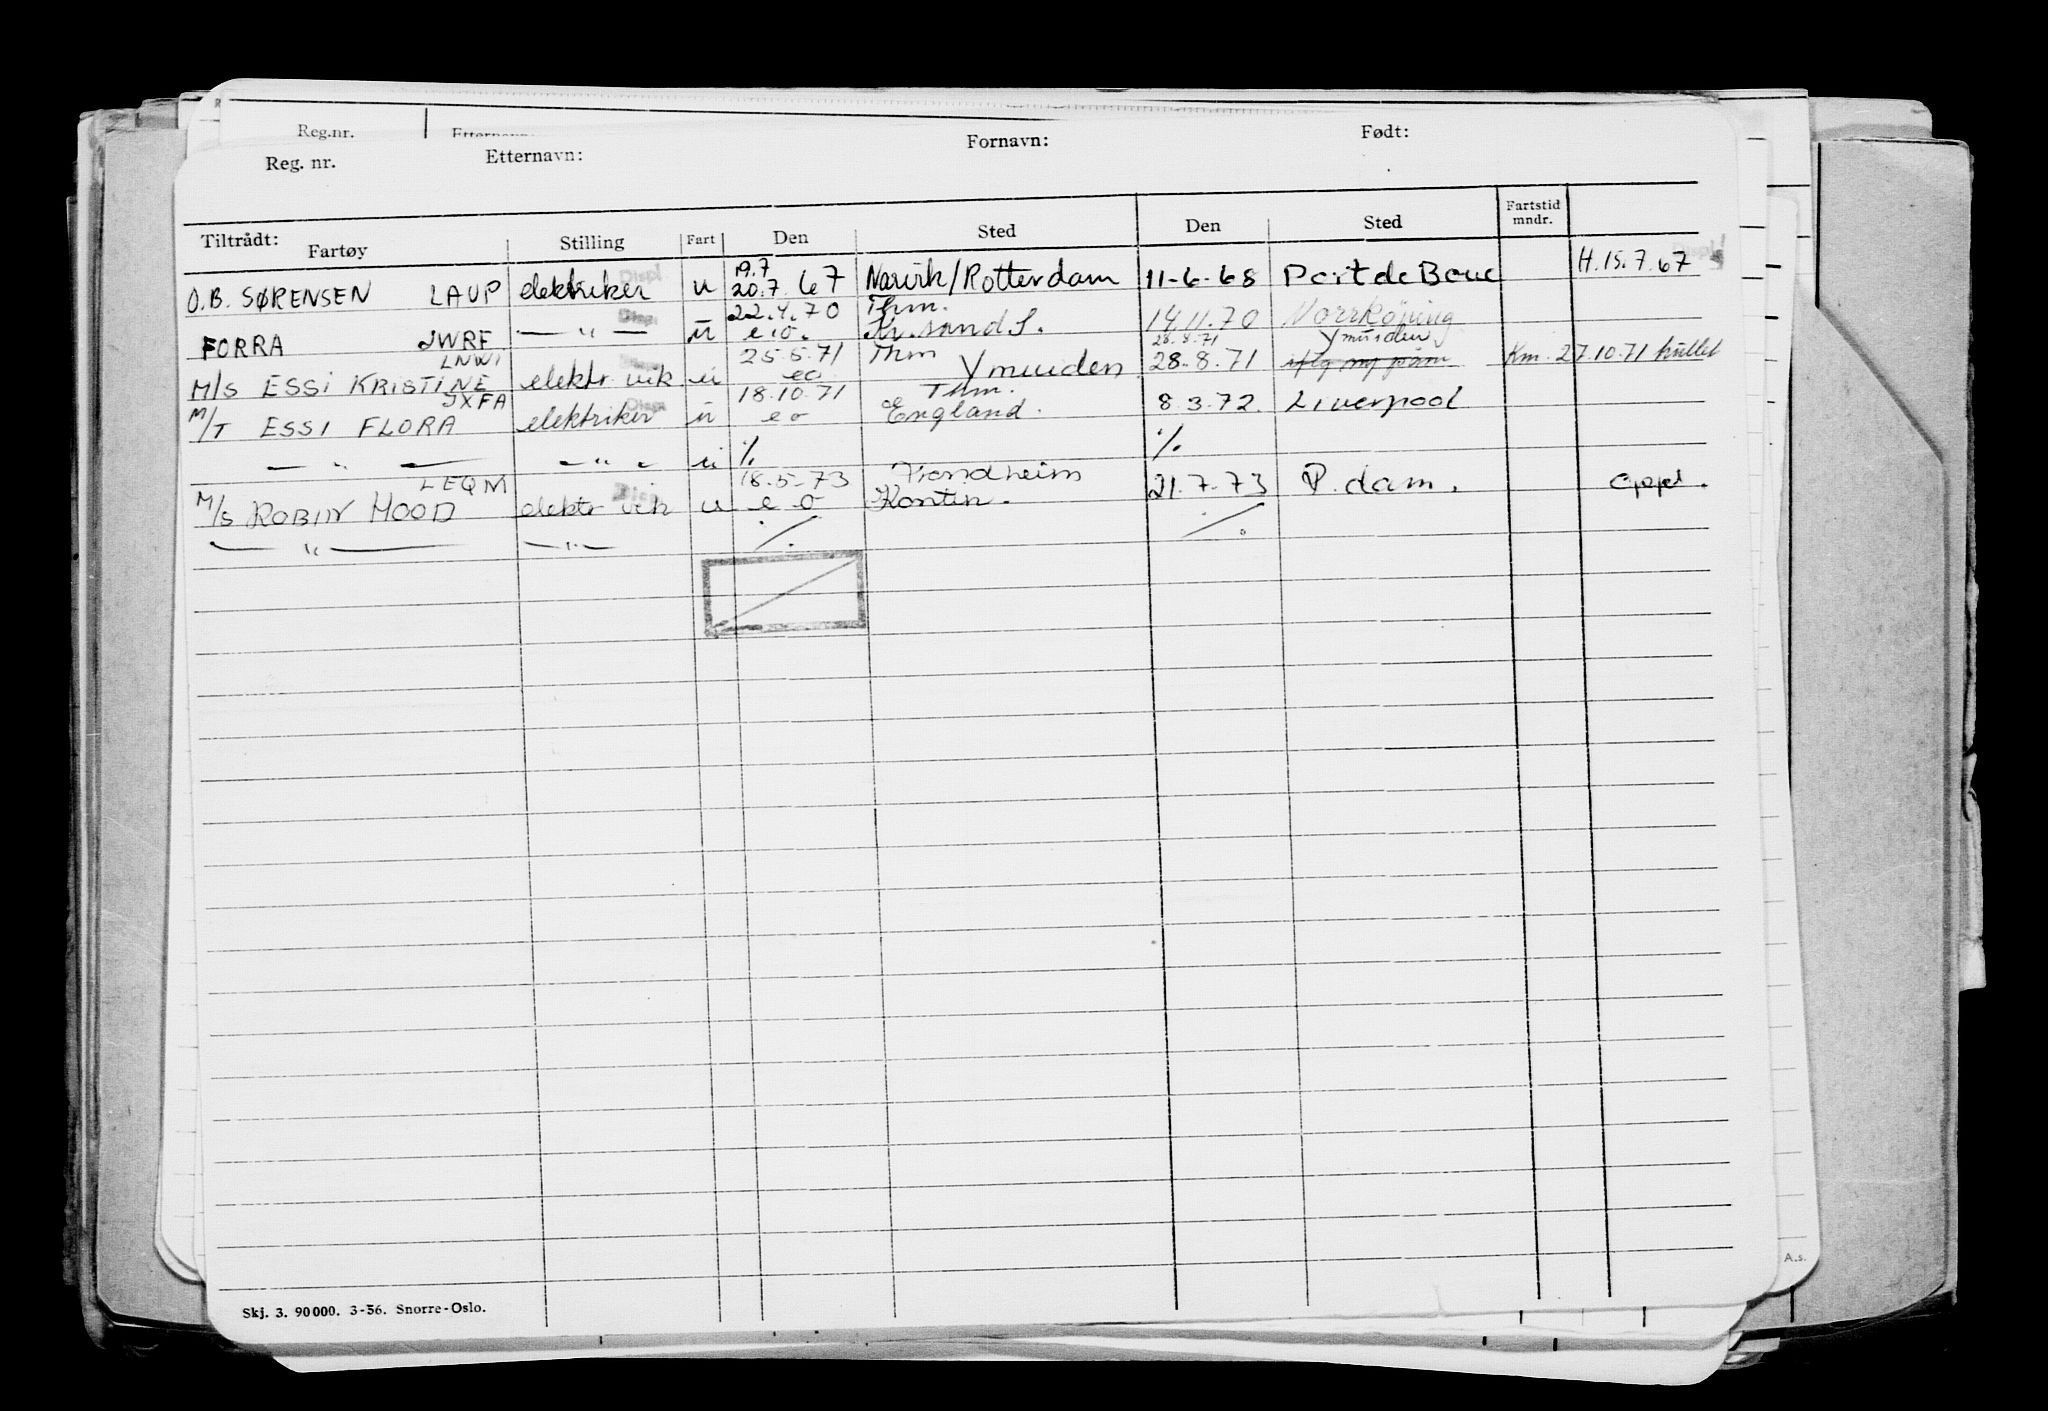 Reg.nr. Etternavn:
Reg. nr. Etternavn: Fornavn: Født:
Tiltrådt: Fartøy Stilling Fart Den Sted Den Sted Fartstid mndr.
19.7
O.B. SØRENSEN LAUP elektriker Displ. u 20.7.67 Narvik/Rotterdam 11-6-68 Port de Bouc H.15.7.67 Displ
22.4.70 Thm.
FORRA JWRF — " — Displ. u e o. Kr.sand S. 14.11.70 Norrköping
LNWI 25.5.71 Thm 28.8.71 Ymuiden
M/S ESSI KRISTINE elektr. vik u eo Ymuiden 28.8.71 Km. 27.10.71 kullet
JXFA 18.10.71 Thm.
M/T ESSI FLORA elektriker Displ u eo England. 8.3.72. Liverpool
— " — — " — u ./. ./.
LEQM 18.5-73 Trondheim
M/S ROBIN HOOD elektr vik Displ u e o Kontin. 21.7.73 R.dam.
— " — — " — ./. ./.
Skj. 3. 90000. 3-56. Snorre-Oslo.
A.s.